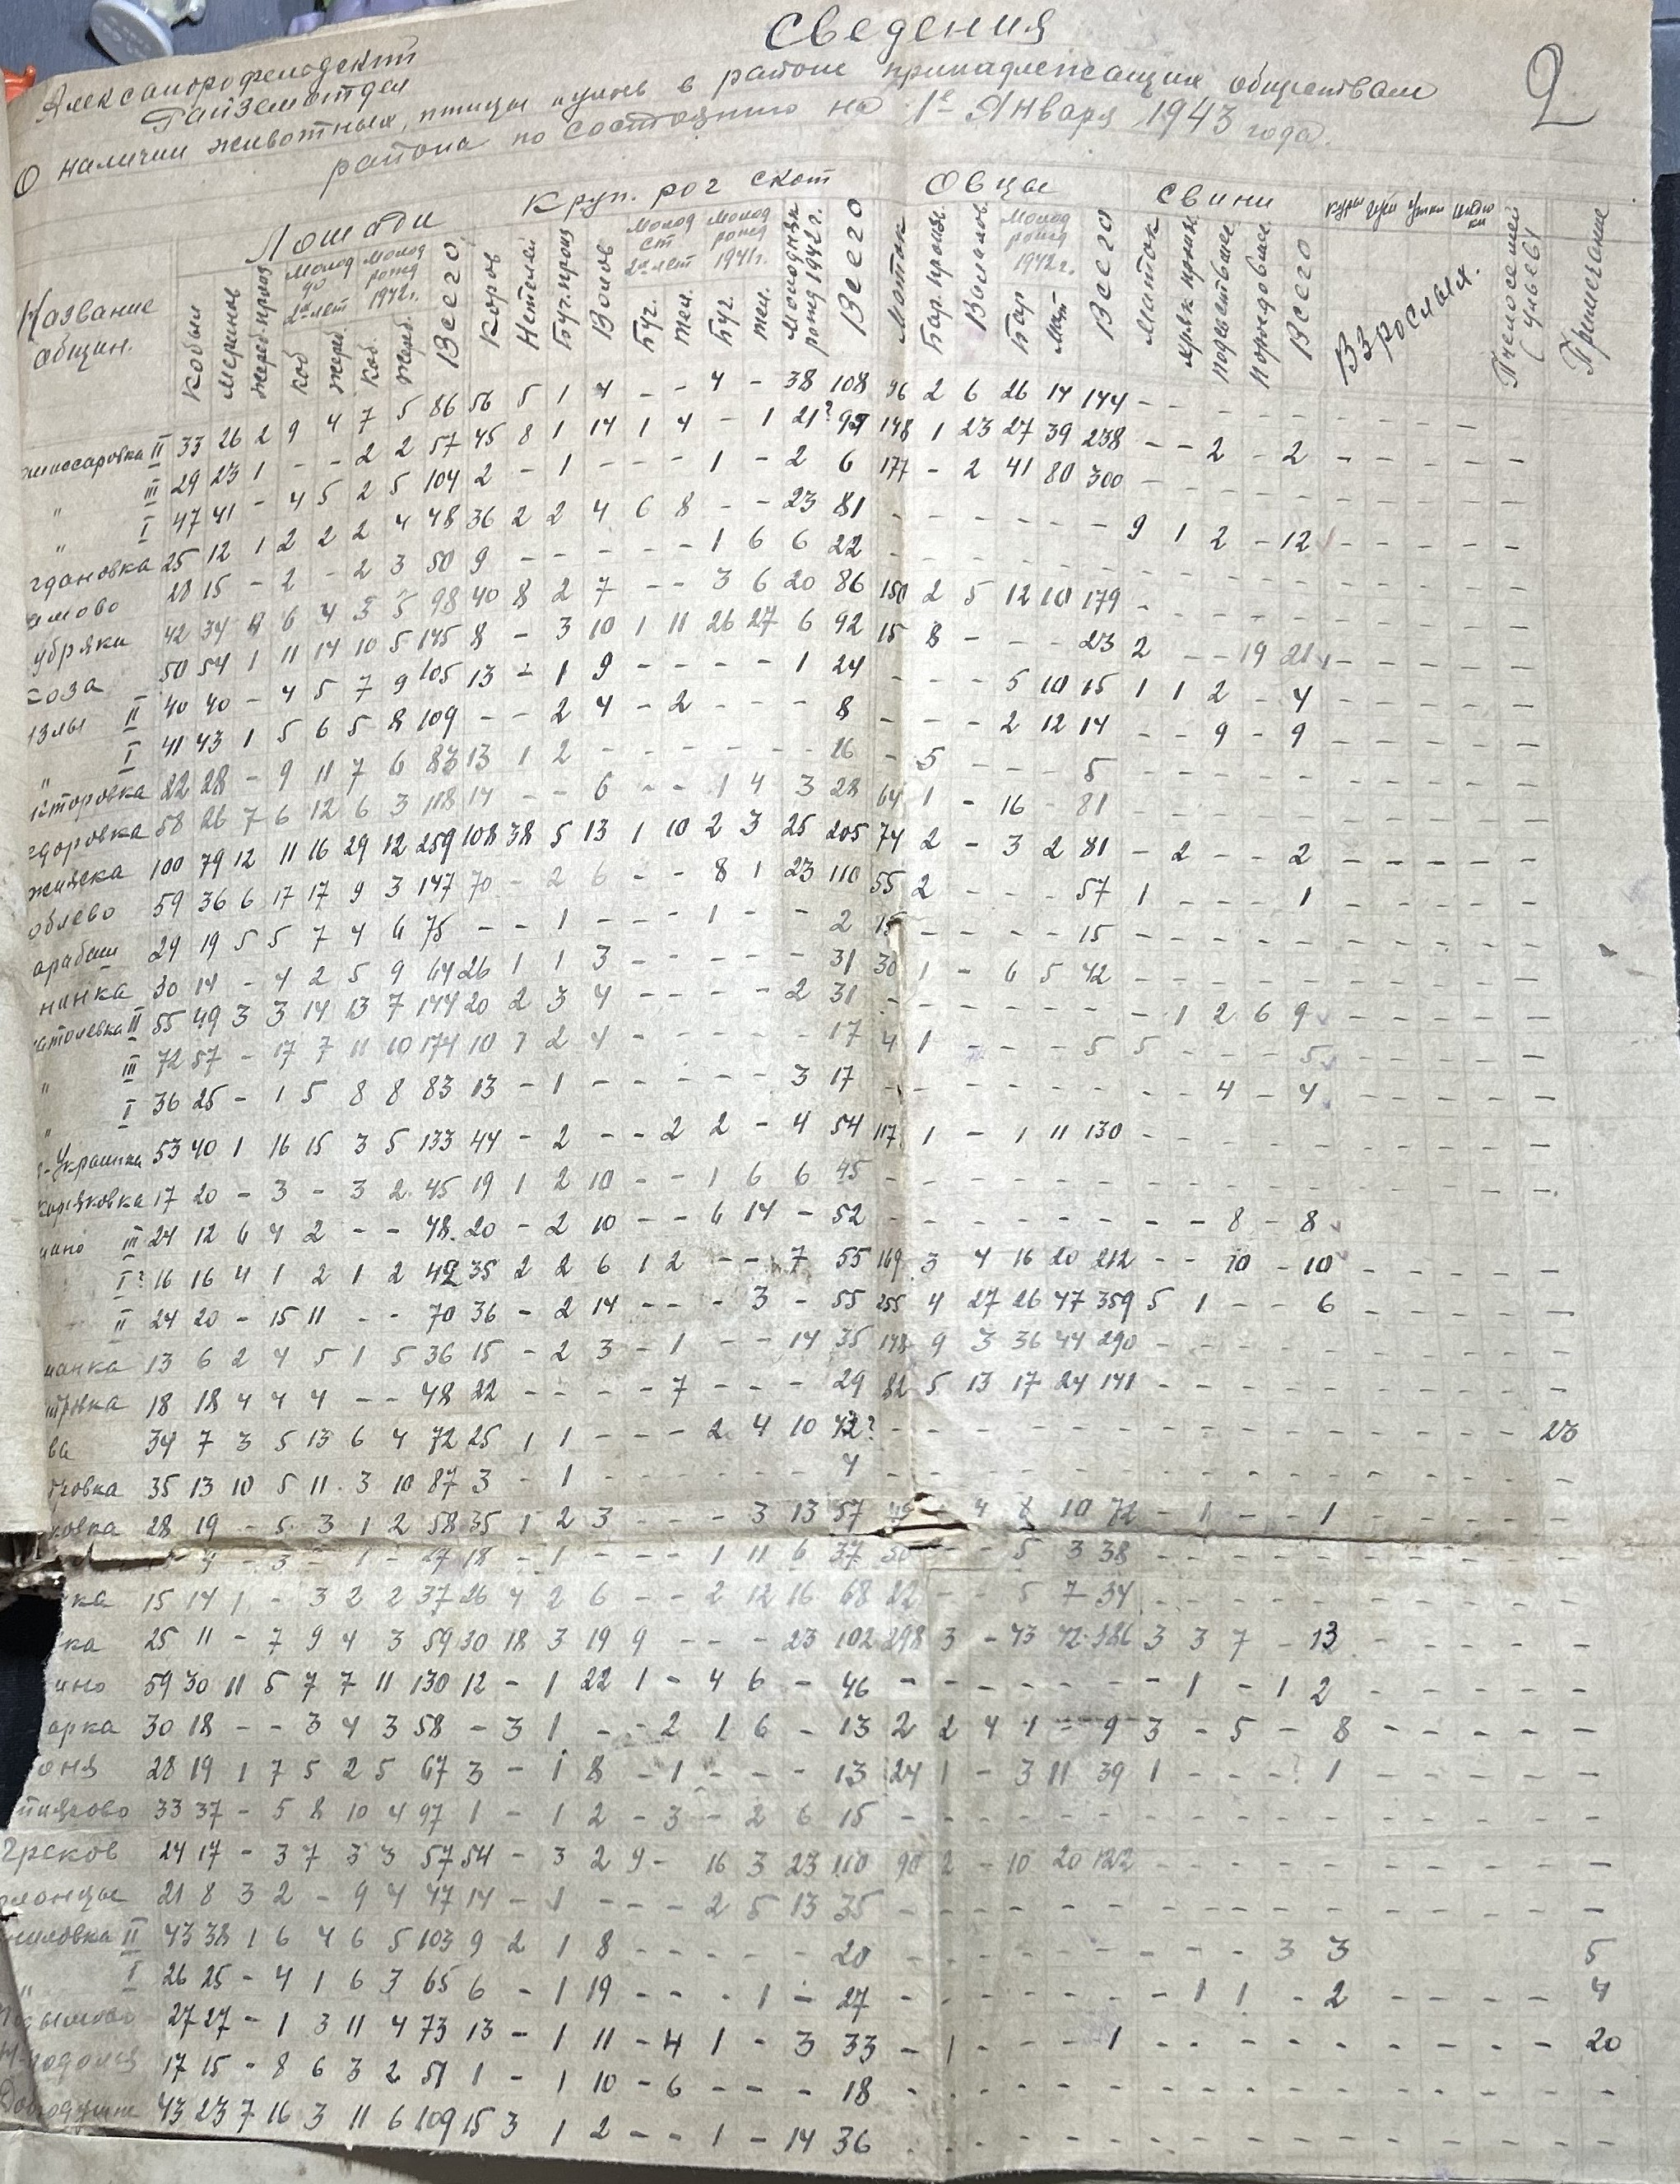 Сведения
2
Райземотдел
О наличии животных, птицы и ульев в районе принадлежащих обществам
района по состоянию на 1е Января 1943 года.
Название общин.
Лошади
Круп. рог скот
Овцы
Свини
Кобыл
Меринов
Жереб. произ
Молод до 2х лет
коб
жереб.
Молод рожд 1942г.
коб.
жереб.
Всего
Коров
Нетелей
Буг. произ
Волов
Молод ст 2х лет
Буг.
тел.
Молод рожд 1941г.
Буг.
тел.
Молодняк рожд 1942г.
Всего
Маток
Бар. произв.
Валахов
Молод рожд 1942г.
Бар
Мат
Всего
Маток
Всего
куры гуси утки индюки
Взрослых.
Пчелосемей (ульев)
Примечание
II 33 26 2 9 4 7 5 86 56 5 1 4 - - 4 - 38 108 96 2 6 26 14 144 - - - - - - - - - -
" III 29 23 1 - - 2 2 57 45 8 1 14 1 4 - 1 21? 148 1 23 27 39 238 - - 2 - 2 - - - - -
" I 47 41 - 4 5 2 5 104 2 - 1 - - - 1 - 2 6 177 - 2 41 80 300 - - - - - - - - - -
гдановка 25 12 1 2 2 2 4 48 36 2 2 4 6 8 - - 23 81 - - - - - - 9 1 2 - 12 - - - - -
28 15 - 2 - 2 3 50 9 - - - - - 1 6 6 22 - - - - - - - - - - - - - - - -
убряка 42 34 4 6 4 3 5 98 40 8 2 7 - - 3 6 20 86 150 2 5 12 10 179 - - - - - - - - - -
соза 50 54 1 11 14 10 5 145 8 - 3 10 1 11 26 27 6 92 15 8 - - - 23 2 - - 19 21 - - - - -
II 40 40 - 4 5 7 9 105 13 - 1 9 - - - - 1 24 - - - 5 10 15 1 1 2 - 4 - - - - -
" I 41 43 1 5 6 5 8 109 - - 2 4 - 2 - - - 8 - - - 2 12 14 - - 9 - 9 - - - - -
сторовка 22 28 - 9 11 7 6 83 13 1 2 - - - - - - 16 - 5 - - - 5 - - - - - - - - - -
доровка 58 26 7 6 12 6 3 118 14 - - 6 - - 1 4 3 28 64 1 - 16 - 81 - - - - - - - - - -
100 79 12 11 16 29 12 259 108 38 5 13 1 10 2 3 25 205 74 2 - 3 2 81 - 2 - - 2 - - - - -
облево 59 36 6 17 17 9 3 147 70 - 2 6 - - 8 1 23 110 55 2 - - - 57 1 - - - 1 - - - - -
29 19 5 5 7 4 6 75 - - 1 - - - 1 - - 2 15 - - - - 15 - - - - - - - - - -
нинка 30 14 - 4 2 5 9 64 26 1 1 3 - - - - - 31 30 1 - 6 5 42 - - - - - - - - - -
II 55 49 3 3 14 13 7 144 20 2 3 4 - - - - 2 31 - - - - - - - 1 2 6 9 - - - - -
" III 72 57 - 17 7 11 10 174 10 1 2 4 - - - - - 17 4 1 - - - 5 5 - - - 5 - - - - -
" I 36 25 - 1 5 8 8 83 13 - 1 - - - - - 3 17 - - - - - - - - 4 - 4 - - - - -
53 40 1 16 15 3 5 133 44 - 2 - - 2 2 - 4 54 117 1 - 1 11 130 - - - - - - - - - -
17 20 - 3 - 3 2 45 19 1 2 10 - - 1 6 6 45 - - - - - - - - - - - - - - - -
III 24 12 6 4 2 - - 48 20 - 2 10 - - 6 14 - 52 - - - - - - - - 8 - 8 - - - - -
I? 16 16 4 1 2 1 2 42 35 2 2 6 1 2 - - 7 55 169 3 4 16 20 212 - - 10 - 10 - - - - -
II 24 20 - 15 11 - - 70 36 - 2 14 - - - 3 - 55 255 4 27 26 47 359 5 1 - - 6 - - - - -
манка 13 6 2 4 5 1 5 36 15 - 2 3 - 1 - - 14 35 198 9 3 36 44 290 - - - - - - - - - -
18 18 4 4 4 - - 48 22 - - - - 7 - - - 29 82 5 13 17 24 141 - - - - - - - - - -
ва 34 7 3 5 13 6 4 72 25 1 1 - - - 2 4 10 42? - - - - - - - - - - - - - - - 23
ровка 35 13 10 5 11 3 10 87 3 - 1 - - - - - - 4 - - - - - - - - - - - - - - - -
ковка 28 19 - 5 3 1 2 58 35 1 2 3 - - - 3 13 57 4 10 72 - 1 - - 1 - - - - -
4 - 3 - 1 - 27 18 - 1 - - - 1 11 6 37 30 - - 5 3 38 - - - - - - - - - -
ка 15 14 1 - 3 2 2 37 26 4 2 6 - - 2 12 16 68 22 - - 5 7 34 - - - - - - - - - -
ка 25 11 - 7 9 4 3 59 30 18 3 19 9 - - - 23 102 298 3 - 43 42 386 3 3 7 - 13 - - - - -
ино 59 30 11 5 7 7 11 130 12 - 1 22 1 - 4 6 - 46 - - - - - - - 1 - 1 2 - - - - -
арка 30 18 - - 3 4 3 58 - 3 1 - - 2 1 6 - 13 2 2 4 1 - 9 3 - 5 - 8 - - - - -
оня 28 19 1 7 5 2 5 67 3 - 1 8 - 1 - - - 13 24 1 - 3 11 39 1 - - - 1 - - - - -
33 37 - 5 8 10 4 97 1 - 1 2 - 3 - 2 6 15 - - - - - - - - - - - - - - - -
Греков 24 17 - 3 7 3 3 57 54 - 3 2 9 - 16 3 23 110 90 2 - 10 20 122 - - - - - - - - - -
21 8 3 2 - 9 4 47 14 - 1 - - - 2 5 13 35 - - - - - - - - - - - - - - - -
иловка II 43 38 1 6 4 6 5 103 9 2 1 8 - - - - - 20 - - - - - - - - - 3 3 5
" I 26 25 - 4 1 6 3 65 6 - 1 19 - - - 1 - 27 - - - - - - - 1 1 - 2 - - - - 4
27 27 - 1 3 11 4 73 13 - 1 11 - 4 1 - 3 33 - 1 - - - 1 - - - - - - - - - 20
17 15 - 8 6 3 2 51 1 - 1 10 - 6 - - - 18 - - - - - - - - - - - - - - - -
43 23 7 16 3 11 6 109 15 3 1 2 - - 1 - 14 36 - - - - - - - - - - - - - - - -